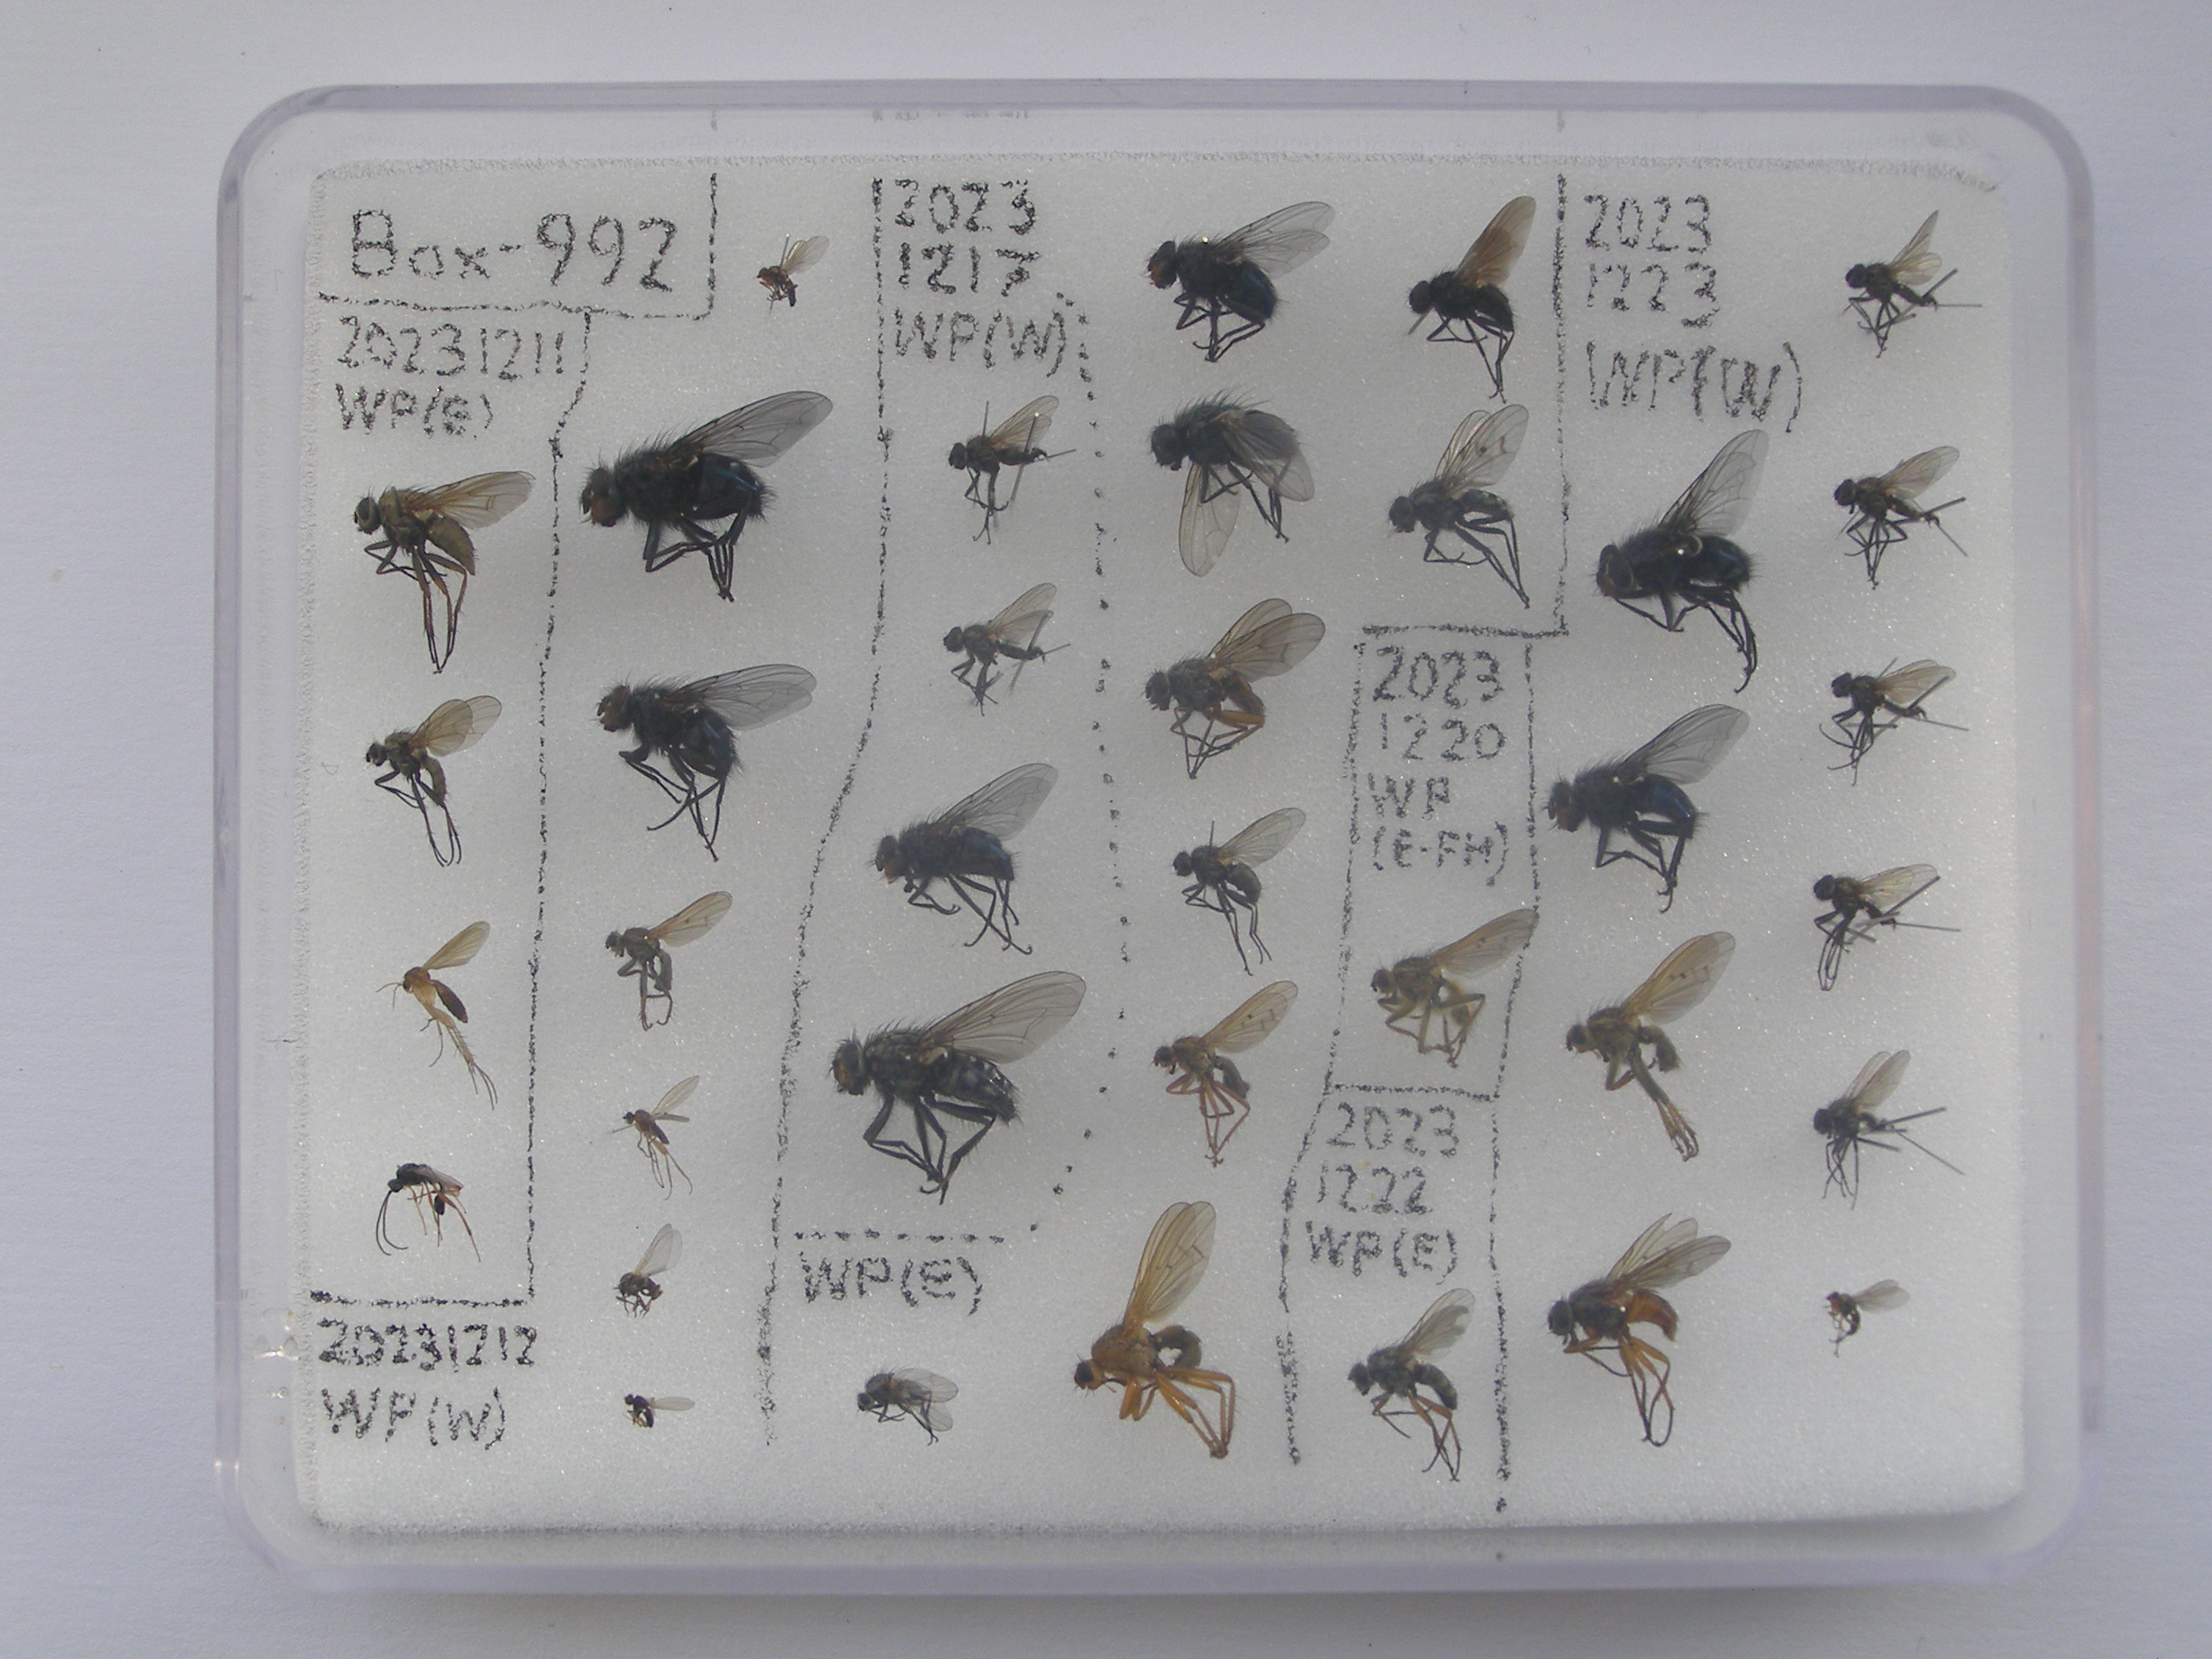 Box-992
20231211
WP(E)
20231212
WP(W)
2023
1217
WP(W)
WP(E)
2023
1220
WP
2023
1222
WP(E)
2023
1223
WP(W)